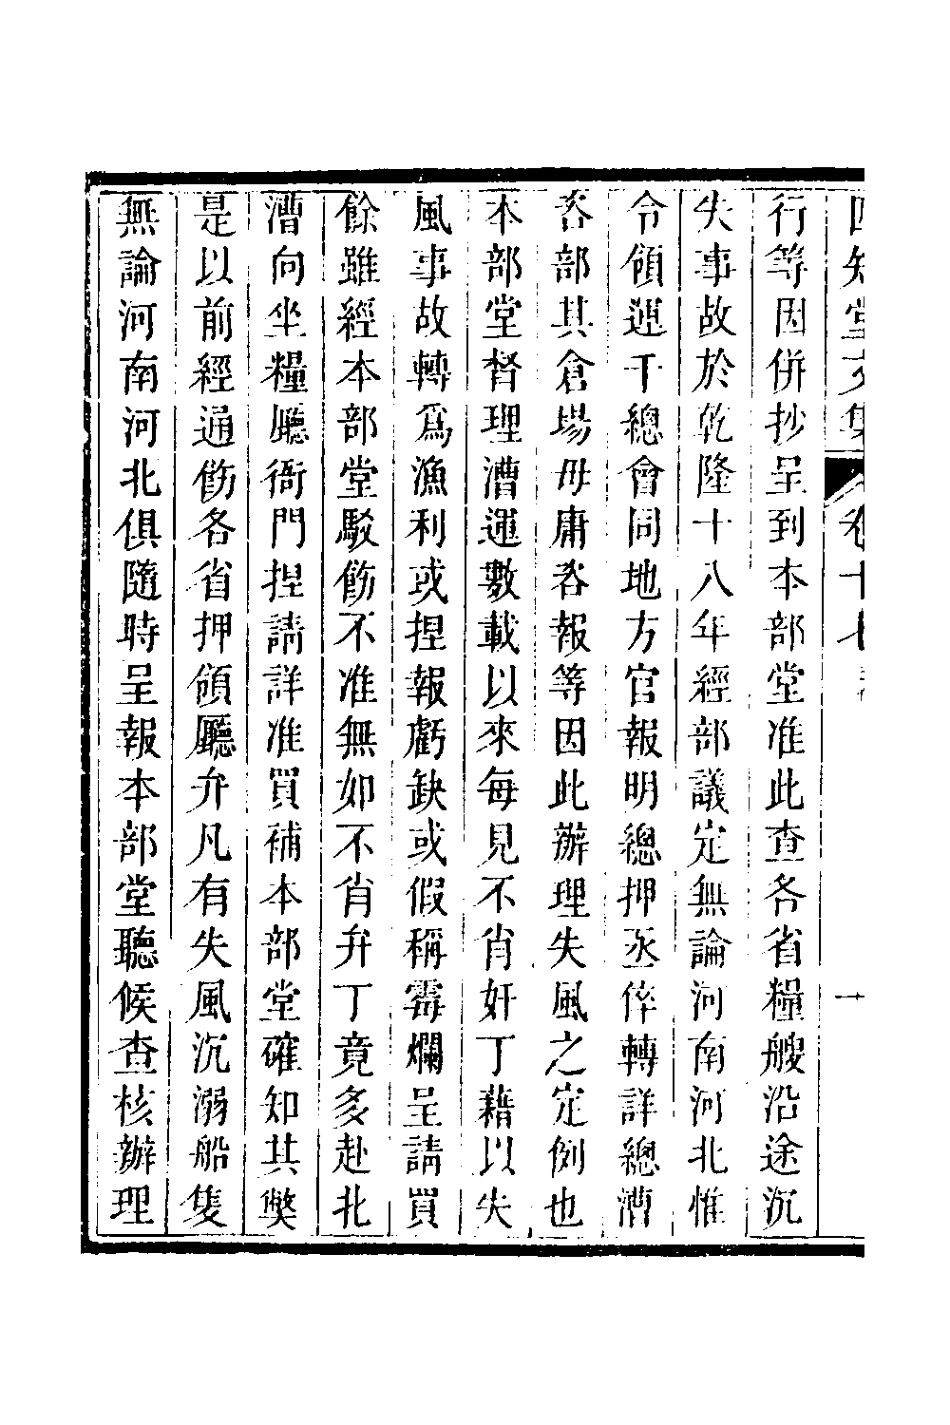 四知堂文集 卷十七 十
行等因併抄呈到本部堂准此查各省糧艘沿途沉
失事故於乾隆十八年經部議定無論河南河北惟
令領運千總會同地方官報明總押丞倅轉詳總漕
咨部其倉場毋庸咨報等因此辦理失風之定例也
本部堂督理漕運數載以來每見不肖奸丁藉以失
風事故轉爲漁利或捏報虧缺或假稱霉爛呈請買
餘雖經本部堂駁飭不准無如不肖弁丁竟多赴北
漕向坐糧廳衙門捏請詳准買補本部堂確知其獘
是以前經通飭各省押領廳弁凡有失風沉溺船隻
無論河南河北俱隨時呈報本部堂聽候查核辦理